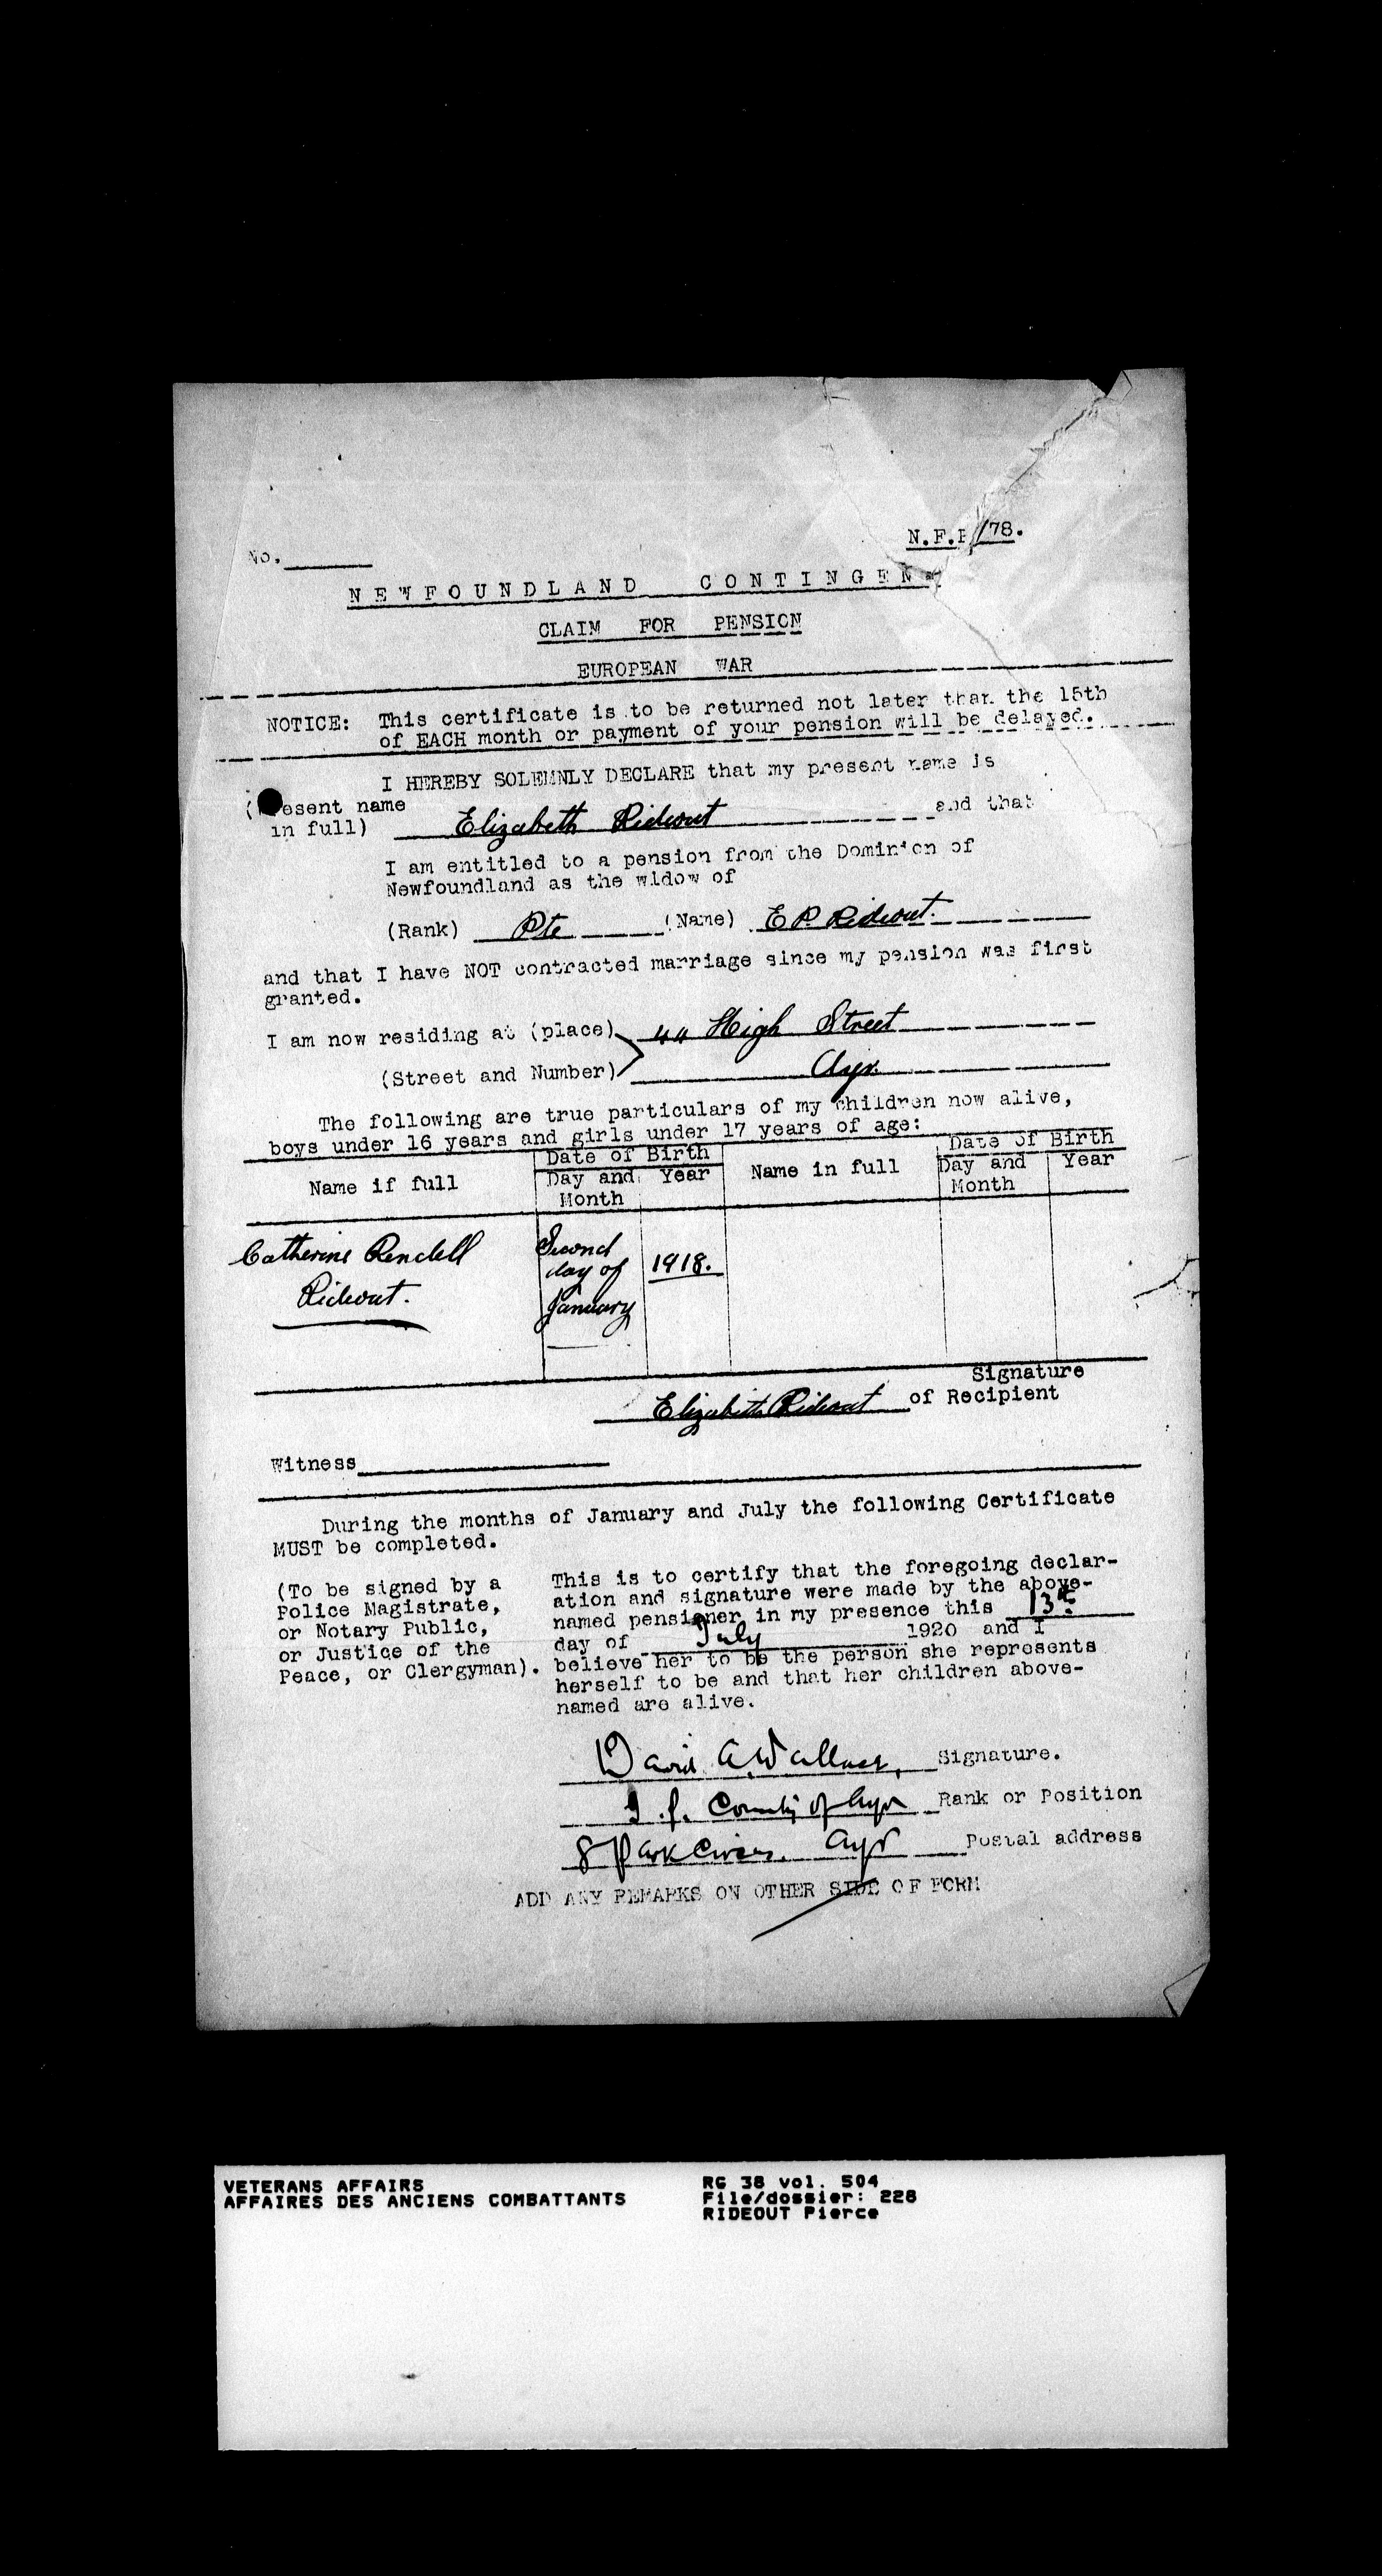 No.
N.F.P/78.
NEWFOUNDLAND CONTINGENT
CLAIM FOR PENSION
EUROPEAN WAR
NOTICE: This certificate is to be returned not later than the 15th
of EACH month or payment of your pension will be delayed.
I HEREBY SOLEMNLY DECLARE that my present name is
(Present name
in full) Elizabeth Rideout and that
I am entitled to a pension from the Dominion of
Newfoundland as the widow of
(Rank) Pte (Name) E P. Rideout.
and that I have NOT contracted marriage since my pension was first
granted.
I am now residing at (place) 44 High Street
(Street and Number) Ayr.
The following are true particulars of my children now alive,
boys under 16 years and girls under 17 years of age:
Name if full Date of Birth Name in full Date of Birth
Day and Month Year Day and Month Year
Catherine Rendell Second
day of 1918.
Rideout. January
Signature
Elizabeth Rideout of Recipient
Witness
During the months of January and July the following Certificate
MUST be completed.
(To be signed by a
Police Magistrate,
or Notary Public,
or Justice of the
Peace, or Clergyman).
This is to certify that the foregoing declar-
ation and signature were made by the above-
named pensioner in my presence this 13th
day of July 1920 and I
believe her to be the person she represents
herself to be and that her children above-
named are alive.
David A. Wallace, Signature.
J.P. County of Ayr Rank or Position
8 Park Circus. Ayr Postal address
ADD ANY REMARKS ON OTHER SIDE OF FORM
VETERANS AFFAIRS
AFFAIRES DES ANCIENS COMBATTANTS
RG 38 vol. 504
File/dossier: 228
RIDEOUT Pierce